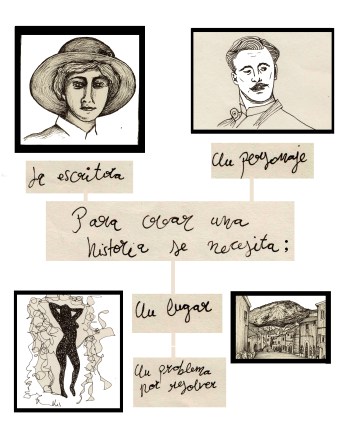 La escritora
Un personaje
Para crear una
historia se necesita;
Un lugar
Un problema
por resolver